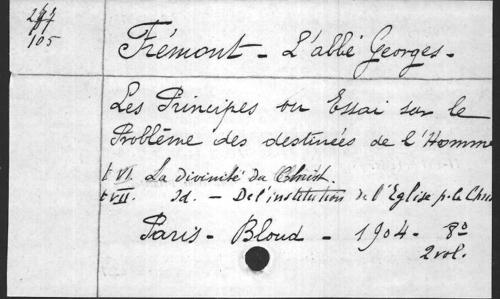 105
Frémont - L'abbé Georges -
Les Principes ou Essai sur le
Problème des destinées de l'Homme
t VI. La divinité du Christ.
t VII. Id. - De l'institution de l'Eglise p. le Chris
Paris - Bloud - 1904 - 8º
2 vol.